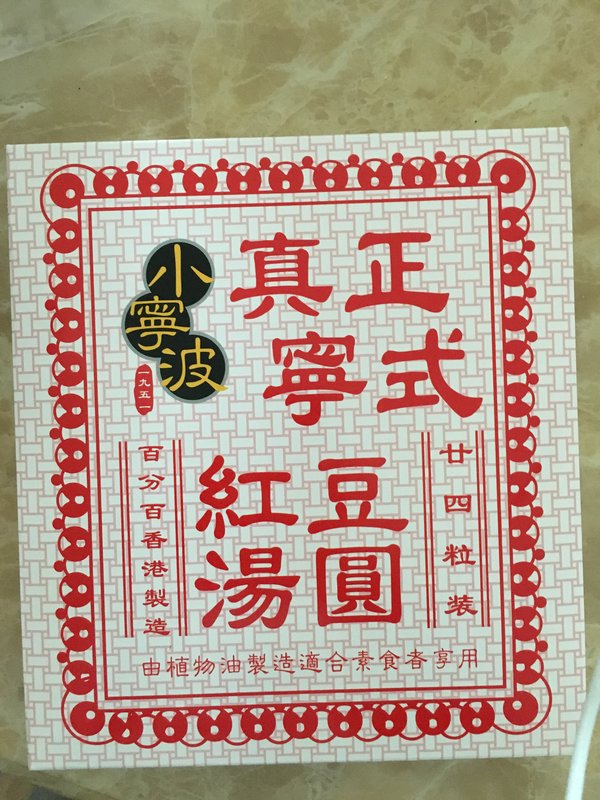 正式
真寧
小寧波
一九五一
紅豆
湯圓
廿四粒裝
百分百香港製造
由植物油製造適合素食者享用